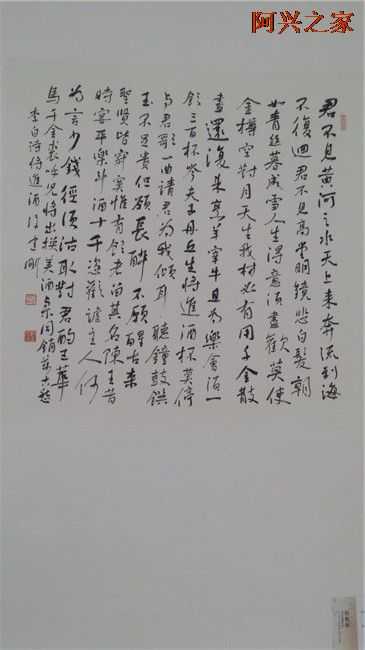 阿兴之家
君不見黃河之水天上来奔流到海
不復迴君不見高堂明鏡悲白髮朝
如青丝暮成雪人生得意須盡歡莫使
金樽空對月天生我材必有用千金散
盡還復来烹羊宰牛且为樂會須一
飲三百杯岑夫子丹丘生將進酒杯莫停
与君歌一曲請君为我倾耳聽鐘鼓饌
玉不足貴但願長醉不願醒古来
聖賢皆寂寞惟有飲者留其名陳王昔
時宴平樂斗酒十千恣歡謔主人何
為言少錢徑須沽取對君酌五華
馬千金裘呼兒将出換美酒与尔同銷萬古愁
李白诗将進酒